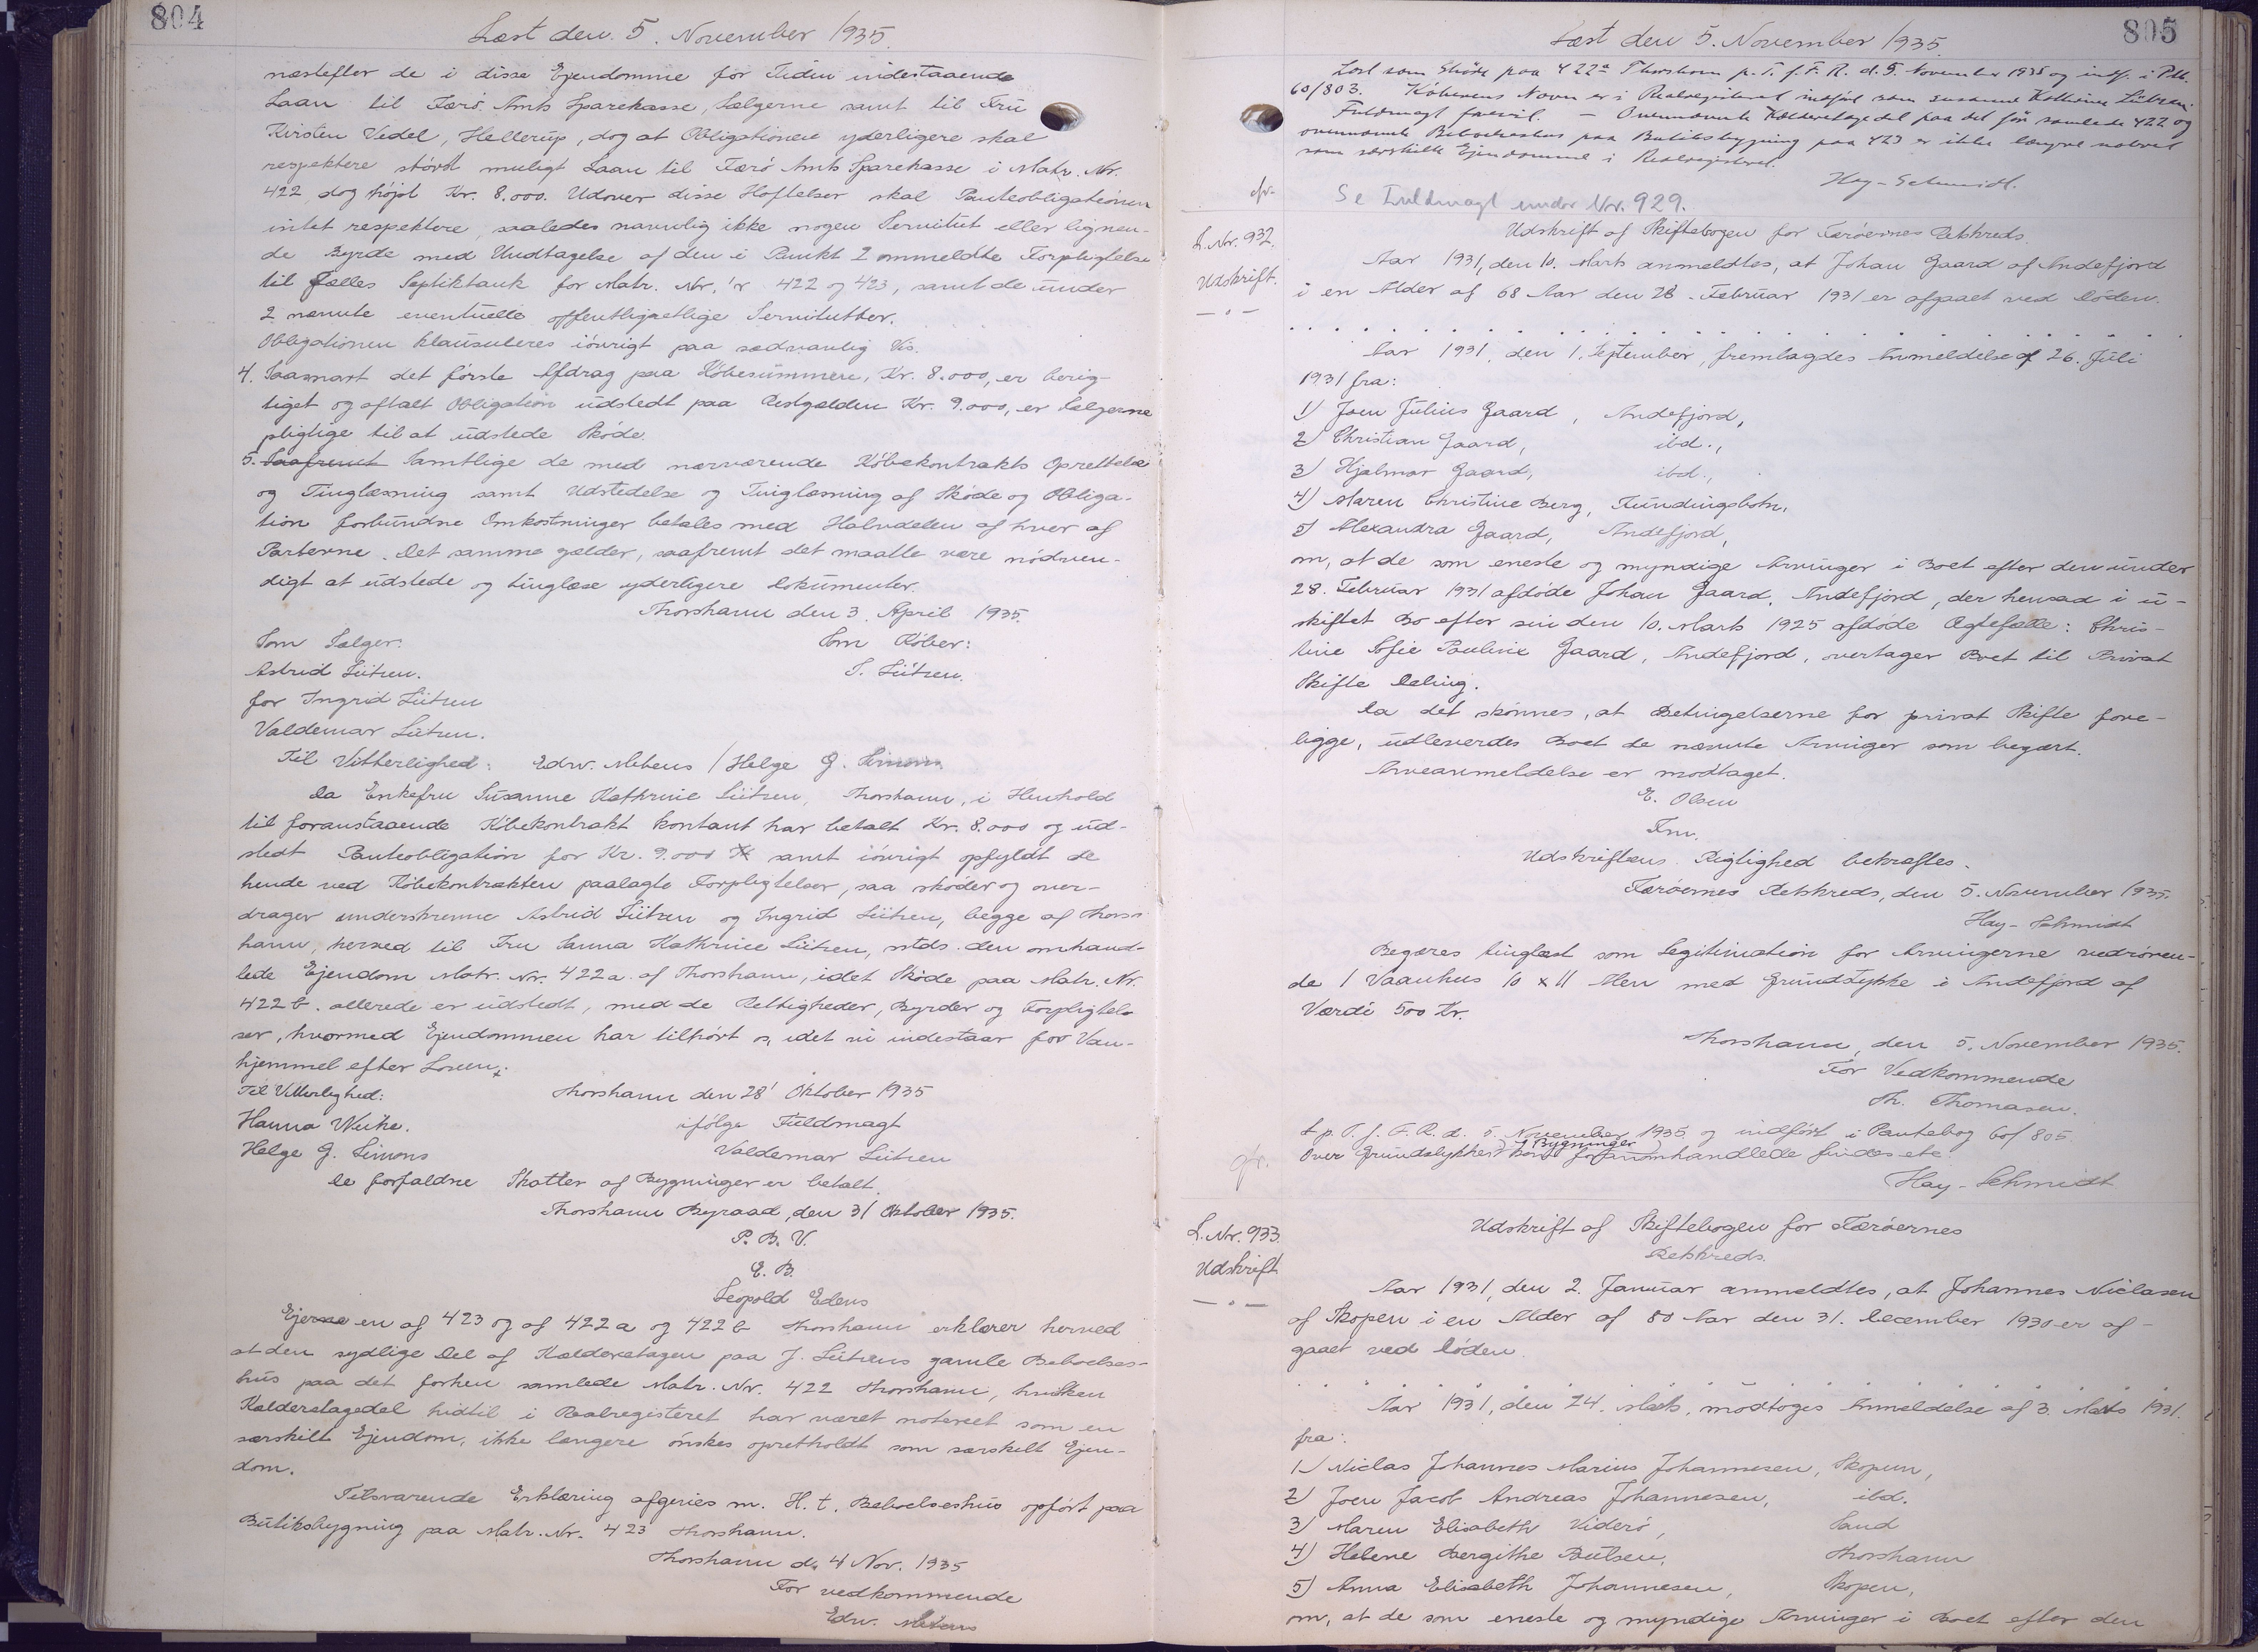 804
Læst den 5. November 1935.
næstefter de i disse Ejendomme for Tiden indestaaende
Laan til Færö Amts Sparekasse, Sælgerne samt til Fru
Kirsten Vedel, Hellerup, dog at Obligationen yderligere skal
respektere störst muligt Laan til Færö Amts Sparekasse i Matr. Nr.
422 dog höjst Kr. 8.000. Udover disse Hæftelser skal Panteobligationen
intet respektere, saaledes navnlig ikke nogen Servitut eller lignen-
de Byrde med Undtagelse af den i Punkt 2 ommeldte Forpligtelse
til fælles Septiktank for Matr. Nr.'r 422 og 423, samt de under
2 nævnte eventuelle offentligretlige Servitutter.
Obligationen klausuleres iövrigt paa sædvanlig Vis.
4. Saasnart det förste Afdrag paa Köbesummen, Kr. 8.000, er berig-
tiget og aftalt Obligation udstedt paa Restgælden Kr. 9.000, er Sælgerne
pligtige til at udstede Sköde.
5. Saafremt Samtlige de med nærværende Köbekontrakts Oprettelse
og Tinglæsning samt Udstedelse og Tinglæsning af Sköde og Obliga-
tion forbundne Omkostninger betales med Halvdelen af hver af
Parterne. Det samme gælder, saafremt det maatte være nödven-
digt at udstede og tinglæse yderligere Dokumenter.
Thorshavn den 3. April 1935.
Som Sælger: Som Köber:
Astrid Lützen. S. Lützen.
for Ingrid Lützen
Valdemar Lützen.
Til Vitterlighed: Edw. Mitens / Helge G. Simons
Da Enkefru Susanne Kathrine Lützen, Thorshavn, i Henhold
til foranstaaende Köbekontrakt kontant har betalt Kr. 8.000 og ud-
stedt Panteobligation for Kr. 9.000 samt iövrigt opfyldt de
hende ved Köbekontrakten paalagte Forpligtelser, saa sköder og over-
drager underskrevne Astrid Lützen og Ingrid Lützen, begge af Thors-
havn, herved til Fru Sanna Kathrine Lützen, smtds. den omhand-
lede Ejendom Matr. Nr. 422a. af Thorshavn, idet Sköde paa Matr. Nr.
422b. allerede er udstedt, med de Rettigheder, Byrder og Forpligtel-
ser, hvormed Ejendommen har tilhört os, idet vi indestaar for Van-
hjemmel efter Loven.
Til Vitterlighed: Thorshavn den 28' Oktober 1935
Hanna Weihe. ifölge Fuldmagt
Helge G. Simons Valdemar Lützen
De forfaldne Skatter af Bygninger er betalt.
Thorshavn Byraad, den 31 Oktober 1935.
P. B. V.
E. B.
Leopold Edens
Ejeren af 423 og af 422a og 422b Thorshavn erklærer herved
at den sydlige Del af Kælderetagen paa J. Lützens gamle Beboelses-
hus paa det forhen samlede Matr. Nr. 422 Thorshavn, hvilken
Kælderetagedel hidtil i Realregisteret har været noteret som en
særskilt Ejendom, ikke længere önskes opretholdt som særskilt Ejen-
dom.
Tilsvarende Erklæring afgives m. H. t. Beboelseshus opfört paa
Butiksbygning paa Matr. Nr. 423 Thorshavn.
Thorshavn d. 4 Nov. 1935
For vedkommende
Edw. Mitens
805
Læst den 5. November 1935.
Læst som Sköde paa 422a Thorshavn p. T. f. F. R. d. 5. November 1935 og indf. i Ptb.
60/803. Köberens Navn er i Realregisteret indfört som Susanne Kathrine Lützen.
Fuldmagt forevist. – Ovennævnte Kælderetagedel paa det för samlede 422 og
ovennævnte Beboelseshus paa Butiksbygning paa 423 er ikke længere noteret
som særskilte Ejendomme i Realregisteret.
Hay-Schmidt.
cfr. Se Fuldmagt under Nr. 929.
L. Nr. 932.
Udskrift.
Udskrift af Skiftebogen for Færöernes Retskreds.
Aar 1931, den 10. Marts anmeldtes, at Johan Gaard af Andefjord
i en Alder af 68 Aar den 28. Februar 1931 er afgaaet ved Döden.
Aar 1931, den 1. September, fremlagdes Anmeldelse af 26. Juli
1931 fra:
1) Joen Julius Gaard, Andefjord,
2) Christian Gaard, ibd.,
3) Hjalmar Gaard, ibd.,
4) Maren Christine Berg, Fundingsbotn,
5) Alexandra Gaard, Andefjord,
om, at de som eneste og myndige Arvinger i Boet efter den under
28. Februar 1931 afdöde Johan Gaard, Andefjord, der hensad i u-
skiftet Bo efter sin den 10. Marts 1925 afdöde Ægtefælle: Chris-
tine Sofie Pauline Gaard, Andefjord, overtager Boet til Privat
Skifte Deling.
Da det skönnes, at Betingelserne for privat Skifte fore-
ligge, udleverdes Boet de nævnte Arvinger som begært.
Arveanmeldelse er modtaget.
E. Olsen
Fm.
Udskriftens Rigtighed bekræftes.
Færöernes Retskreds, den 5. November 1935.
Hay-Schmidt
Begæres tinglæst som Legitimation for Arvingerne vedrören-
de 1 Vaanhus 10 x 11 Alen med Grundstykke i Andefjord af
Værdi 500 Kr.
Thorshavn, den 5. November 1935.
For Vedkommende
Th. Thomasen.
L. p. T. f. F. R. d. 5. November 1935 og indfört i Pantebog 60/805.
Over Grundstykket Bygninger omhandlede findes ete
Hay-Schmidt
L. Nr. 933.
Udskrift
Udskrift af Skiftebogen for Færöernes
Retskreds.
Aar 1931, den 2. Januar anmeldtes, at Johannes Niclasen
af Skopen i en Alder af 80 Aar den 31. December 1930 er af-
gaaet ved Döden.
Aar 1931, den 24. Marts, modtoges Anmeldelse af 3. Marts 1931.
fra:
1) Niclas Johannes Marius Johannesen, Skopun,
2) Joen Jacob Andreas Johannesen, ibd.
3) Maren Elisabeth Viderö, Sand
4) Helene Bergithe Poulsen, Thorshavn
5) Anna Elisabeth Johannesen, Skopen,
om, at de som eneste og myndige Arvinger i Boet efter den